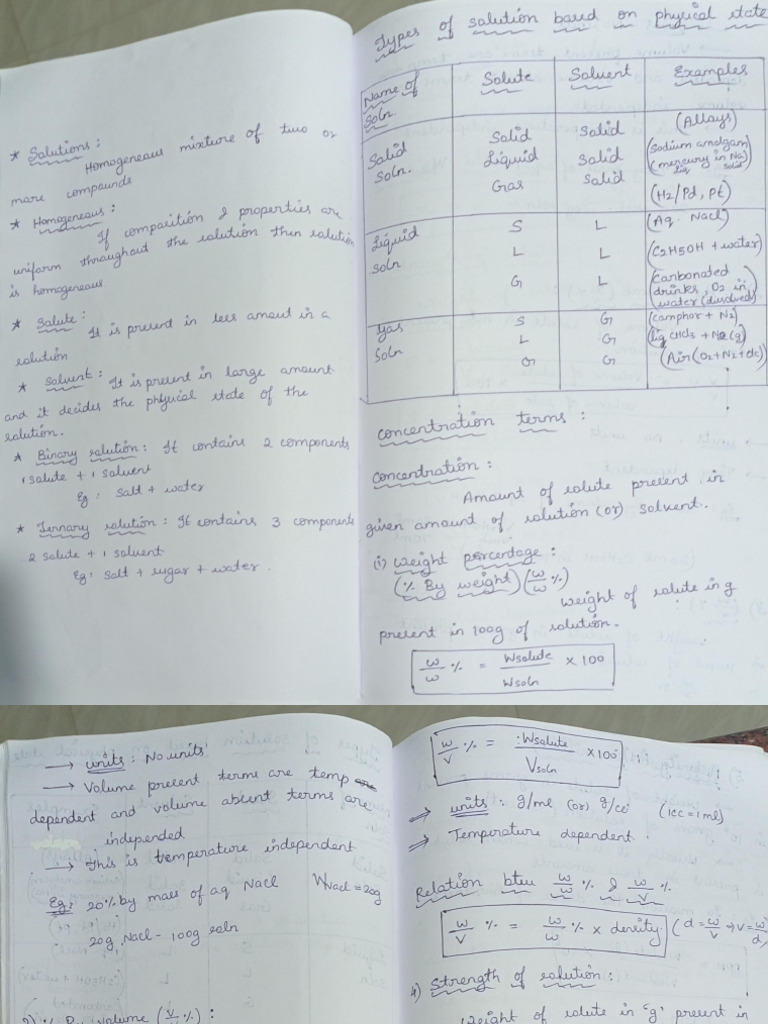 * Solutions :
Homogeneous mixture of two or
more compounds
* Homogeneous :
If composition & properties are
uniform throughout the solution then solution
is homogeneous
* Solute :
It is present in less amount in a
solution
* Solvent : It is present in large amount
and it decides the physical state of the
solution.
* Binary solution : It contains 2 components
1 solute + 1 solvent
Eg : Salt + water
* Ternary solution : It contains 3 components
2 solute + 1 solvent
Eg : Salt + sugar + water .
Types of solution based on physical state
Name of Soln. Solute Solvent Examples
Solid soln. Solid Solid (Alloys)
Liquid Solid (Sodium amalgam) (mercury in Na) liq solid
Gas Solid (H2/Pd, Pt)
Liquid soln S L (Aq. Nacl)
L L (C2H5OH + water)
G L (Carbonated drinks, O2 in water (dissolved)
Gas Soln S G (camphor + N2)
L G (liq CHCl3 + N2(g)
G G (Air (O2+N2+
Concentration terms :
Concentration :
Amount of solute present in
given amount of solution (or) solvent.
(i) Weight percentage :
(% By weight) (w/w %)
weight of solute in g
present in 100g of solution.
w/w % = Wsolute/Wsoln × 100
→ units : No units
→ Volume present terms are temp
dependent and volume absent terms are
independed
→ This is temperature independent
Eg: 20% by mass of aq Nacl WNacl = 20g
20g Nacl - 100g soln
% By volume (v/v %) :
w/v % = Wsolute/Vsoln × 100
⇒ units : g/ml (or) g/cc (1cc = 1ml)
⇒ Temperature dependent
Relation btw w/w % & w/v %
w/v % = w/w % × density (d = w/v → v = w/d)
4) Strength of solution :
Weight of solute in 'g' present in